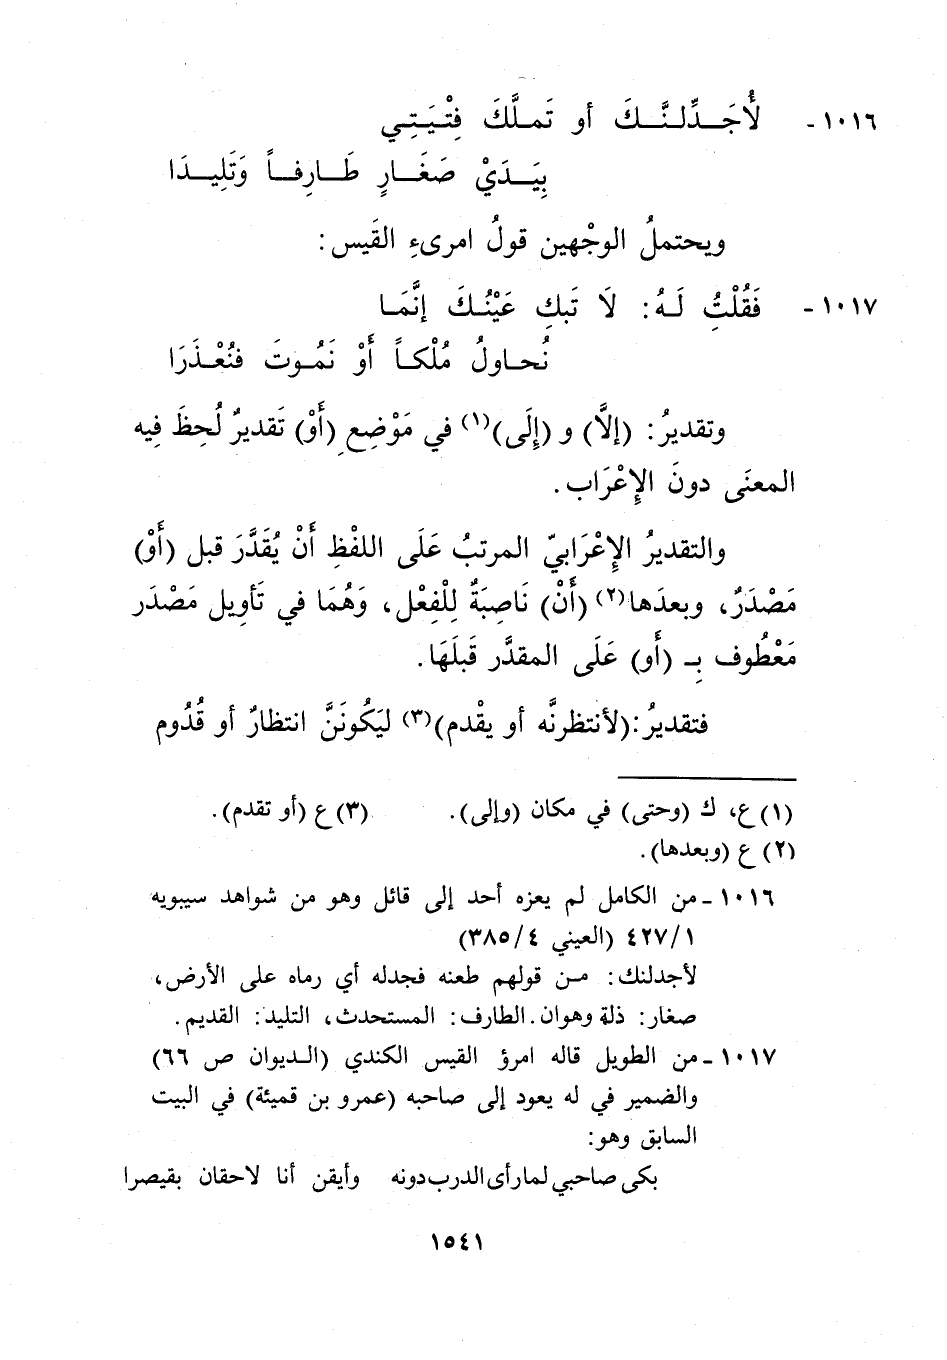 ١٠١٦ - لَأُجَــدِّلَنَّــكَ أو تَملَّكَ فِتْيَتِي
بِيَــدَيْ صَغَــارٍ طَـارِفـاً وَتَلِيــدَا
ويحتملُ الوجْهين قولُ امرىءِ القَيس:
١٠١٧ - فَقُلْتُ لَـهُ: لَا تَبكِ عَيْنُـكَ إنَّمَـا
نُحـاولُ مُلْكـاً أَوْ نَمُـوتَ فنُعْـذَرَا
وتقديرُ: (إلَّا) و (إِلَى)(١) في مَوْضِعِ (أَوْ) تَقديرٌ لُحِظَ فِيه
المعنَى دونَ الإِعْرَاب.
والتقديرُ الإِعْرَابيّ المرتبُ عَلَى اللفْظِ أَنْ يُقَدَّرَ قبل (أَوْ)
مَصْدَرٌ، وبعدَها(٢) (أَنْ) نَاصِبَةٌ لِلْفِعْل، وَهُمَا في تَأويل مَصْدَر
مَعْطُوفٍ بـ (أَو) عَلَى المقدَّر قَبلَهَا.
فتقديرُ:(لأنتظرنَّه أو يقْدم)(٣) ليَكُونَنَّ انتظارٌ أو قُدُوم
(١) ع، ك (وحتى) في مكان (وإلى). (٣) ع (أو تقدم).
(٢) ع (وبعدها).
١٠١٦ - من الكامل لم يعزه أحد إلى قائل وهو من شواهد سيبويه
٤٢٧/١ (العيني ٣٨٥/٤)
لأجدلنك: مـن قولهم طعنه فجدله أي رماه على الأرض،
صغار: ذلة وهوان. الطارف: المستحدث، التليد: القديم.
١٠١٧ - من الطويل قاله امرؤ القيس الكندي (الـديوان ص ٦٦)
والضمير في له يعود إلى صاحبه (عمرو بن قميئة) في البيت
السابق وهو:
بكى صاحبي لما رأى الدرب دونه وأيقن أنا لاحقان بقيصرا
١٥٤١